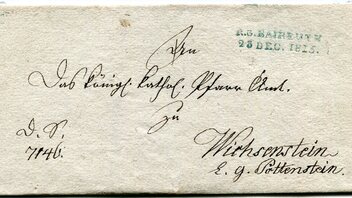 R.3. BAIREUTH
23 DEC. 1815.
An
Das Königl. kathol. Pfarr Amt.
zu
D. S.
7146.
Wichsenstein
E. g. Pottenstein.